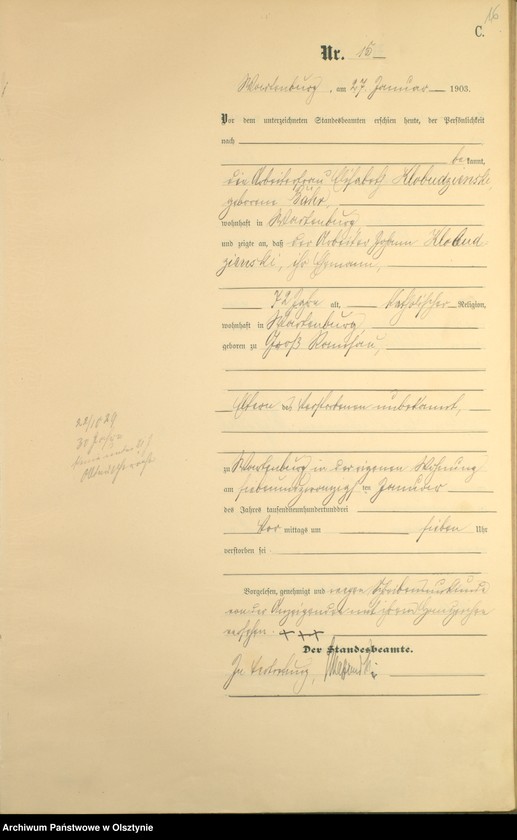 16
C.
Nr. 15
Wartenburg, am 27. Januar 1903.
Vor dem unterzeichneten Standesbeamten erschien heute, der Persönlichkeit
nach
be kannt,
die Arbeiterfrau Elisabeth Klobudzienski,
geborene
wohnhaft in Wartenburg
und zeigte an, daß der Arbeiter Johann Klobud
zienski, ihr Ehemann,
72 Jahre alt, Catholischer Religion,
wohnhaft in Wartenburg,
geboren zu Groß Ramsau,
Eltern des Verstorbenen unbekannt,
zu Wartenburg in der eigenen Wohnung
am siebenundzwanzigsten Januar
des Jahres tausendneunhundertunddrei
Vor mittags um sieben Uhr
verstorben sei
Vorgelesen, genehmigt und wegen Schreibensunkunde
von der Anzeigenden mit ihrem Handzeichen
versehen. +++
Der Standesbeamte.
In Vertretung,
Archiwum Państwowe w Olsztynie